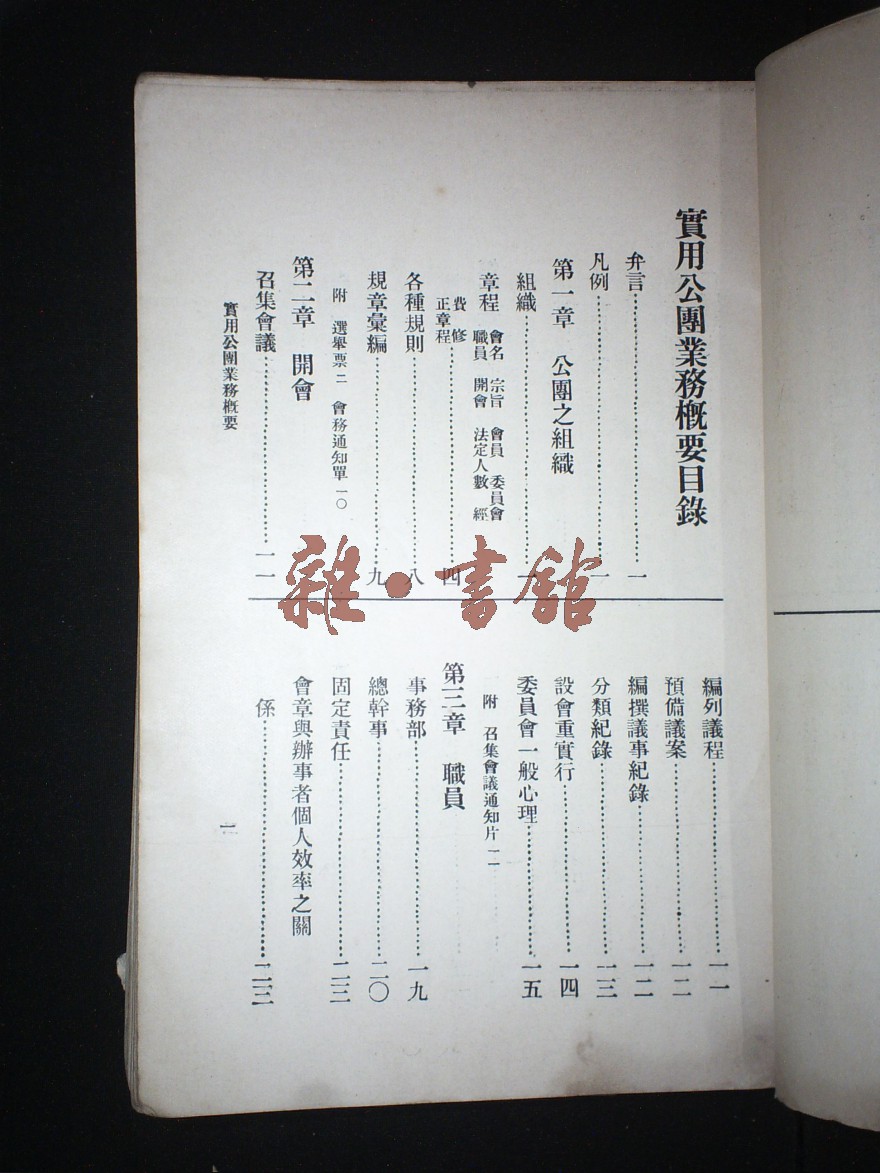 實用公團業務概要目錄
弁言……一
凡例……一
第一章 公團之組織
組織……一
章程 會名 宗旨 會員 委員會
職員 開會 法定人數 經
費 修
正章程……四
各種規則……八
規章彙編……九
附 選舉票二 會務通知單一〇
第二章 開會
召集會議……一一
編列議程……一一
預備議案……一二
編撰議事紀錄……一二
分類紀錄……一三
設會重實行……一四
委員會一般心理……一五
附 召集會議通知片一一
第三章 職員
事務部……一九
總幹事……二〇
固定責任……二三
會章與辦事者個人效率之關
係……二三
實用公團業務概要
一
雜·書館